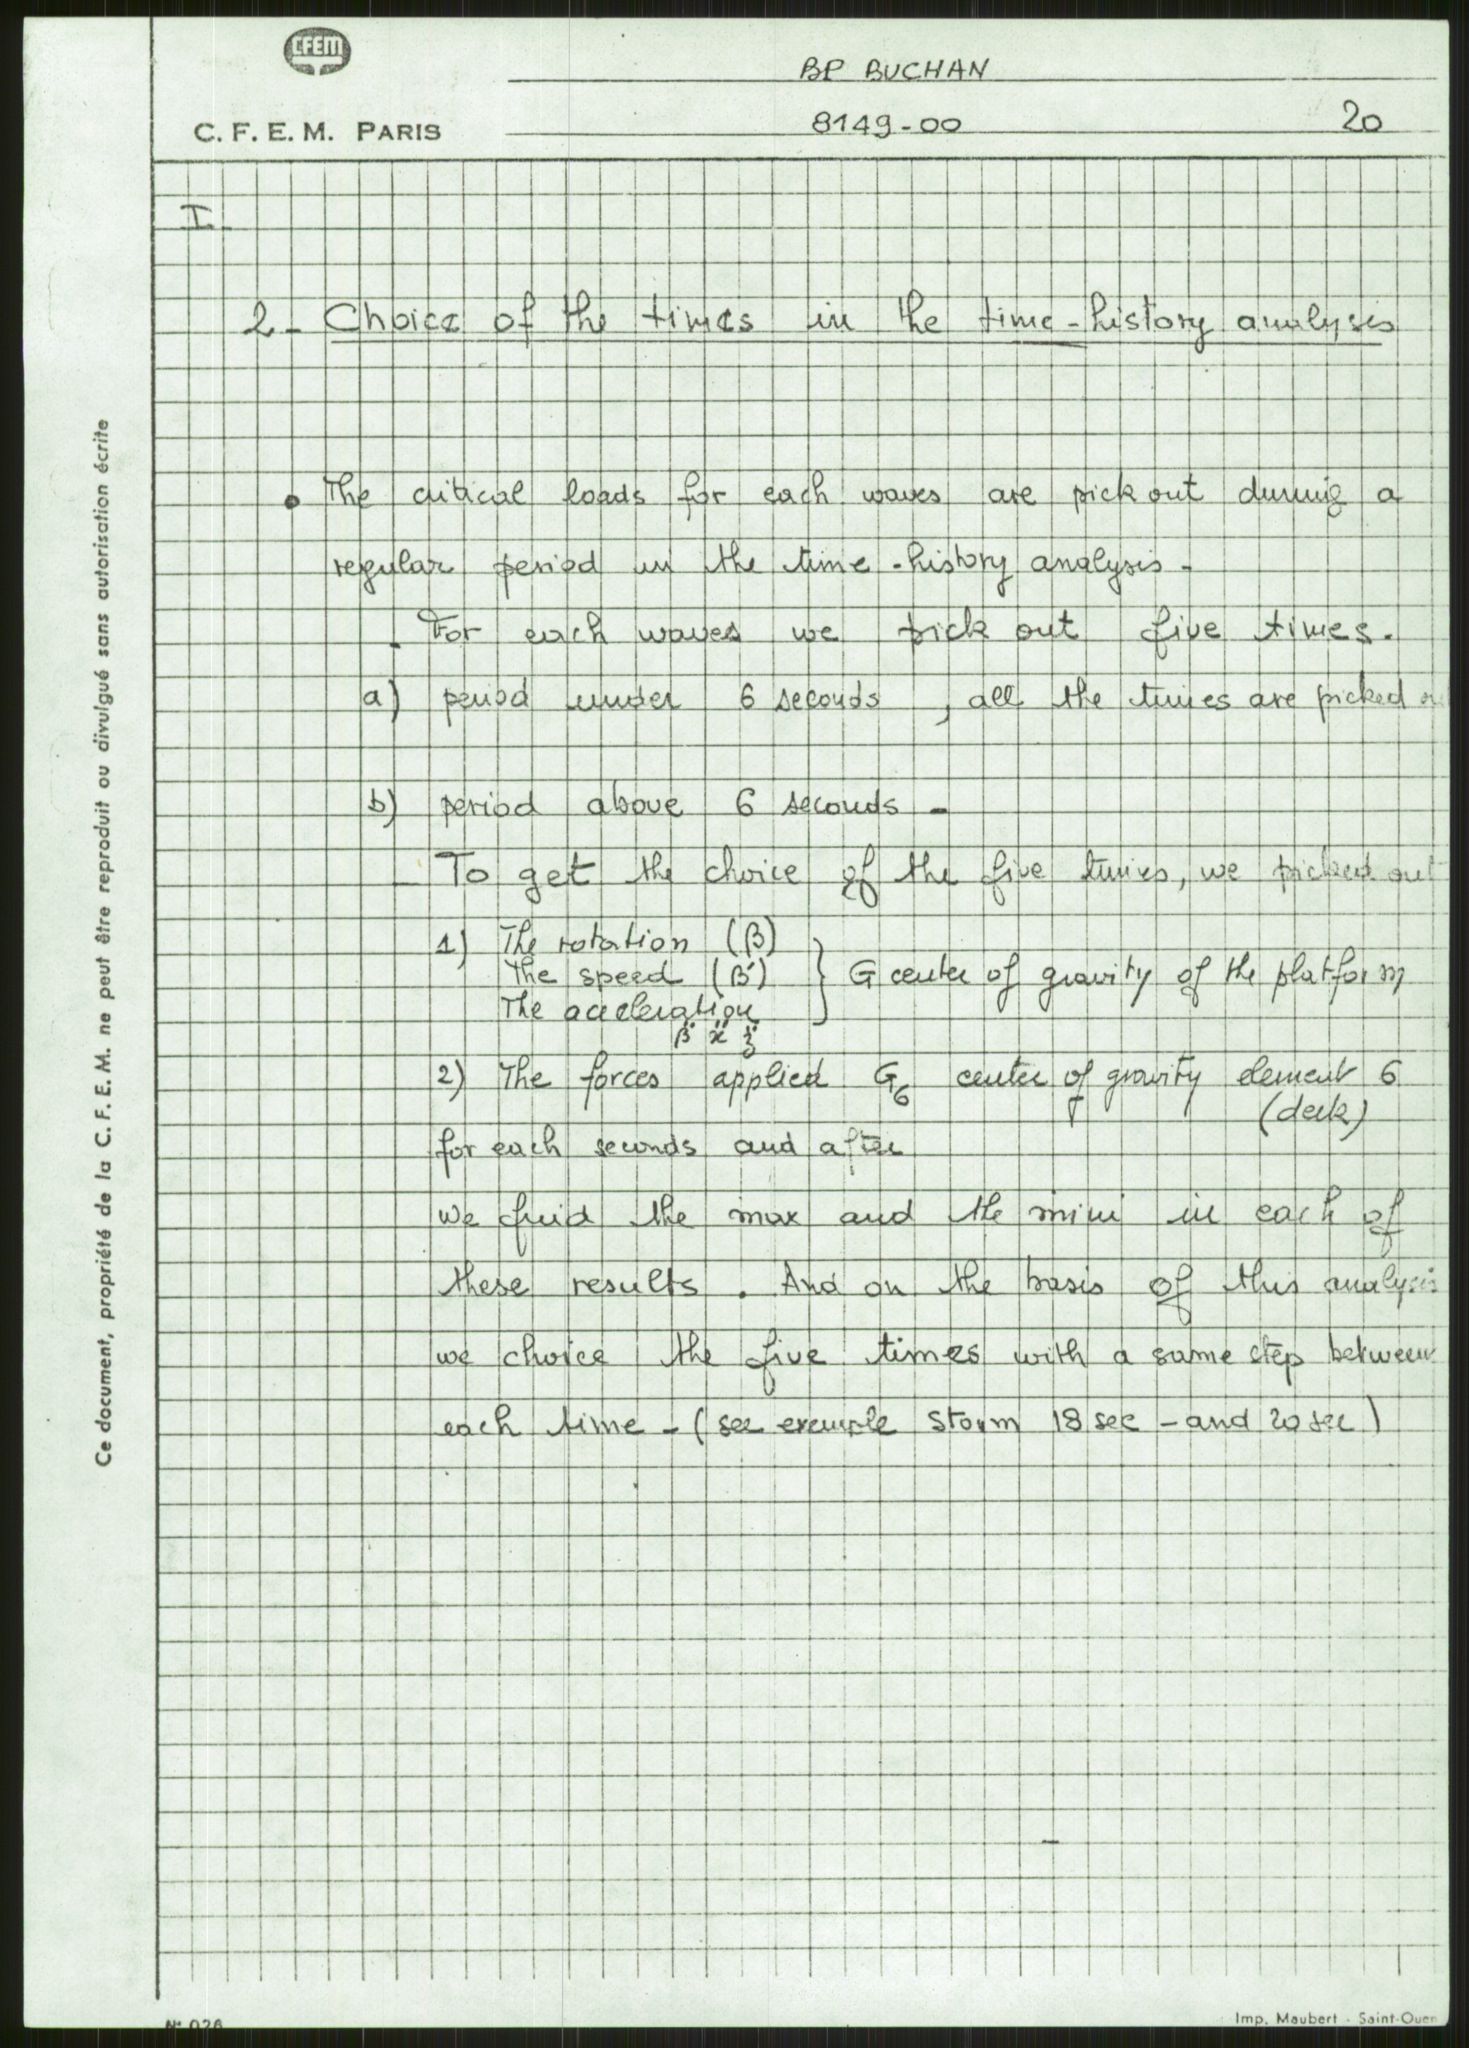 CFEM
BP BUCHAN
C. F. E. M. PARIS
8149-00
20
I.
2 - Choice of the times in the time - history analysis
• The critical loads for each waves are pick out during a
regular period in the time - history analysis -
- For each waves we pick out five times.
a) period under 6 seconds, all the times are picked ou
b) period above 6 seconds -
- To get the choice of the five times, we picked out
1) The rotation (β)
The speed (β̇) } G center of gravity of the platform
The acceleration
β̈ ẍ z̈
2) The forces applied G6 center of gravity element 6
(deck)
for each seconds and after
we find the max and the mini in each of
these results. And on the basis of this analysis
we choice the five times with a same step between
each time - (see exemple storm 18 sec - and 20 sec)
Ce document, propriété de la C. F. E. M. ne peut être reproduit ou divulgué sans autorisation écrite
N° 026
Imp. Maubert - Saint-Ouen